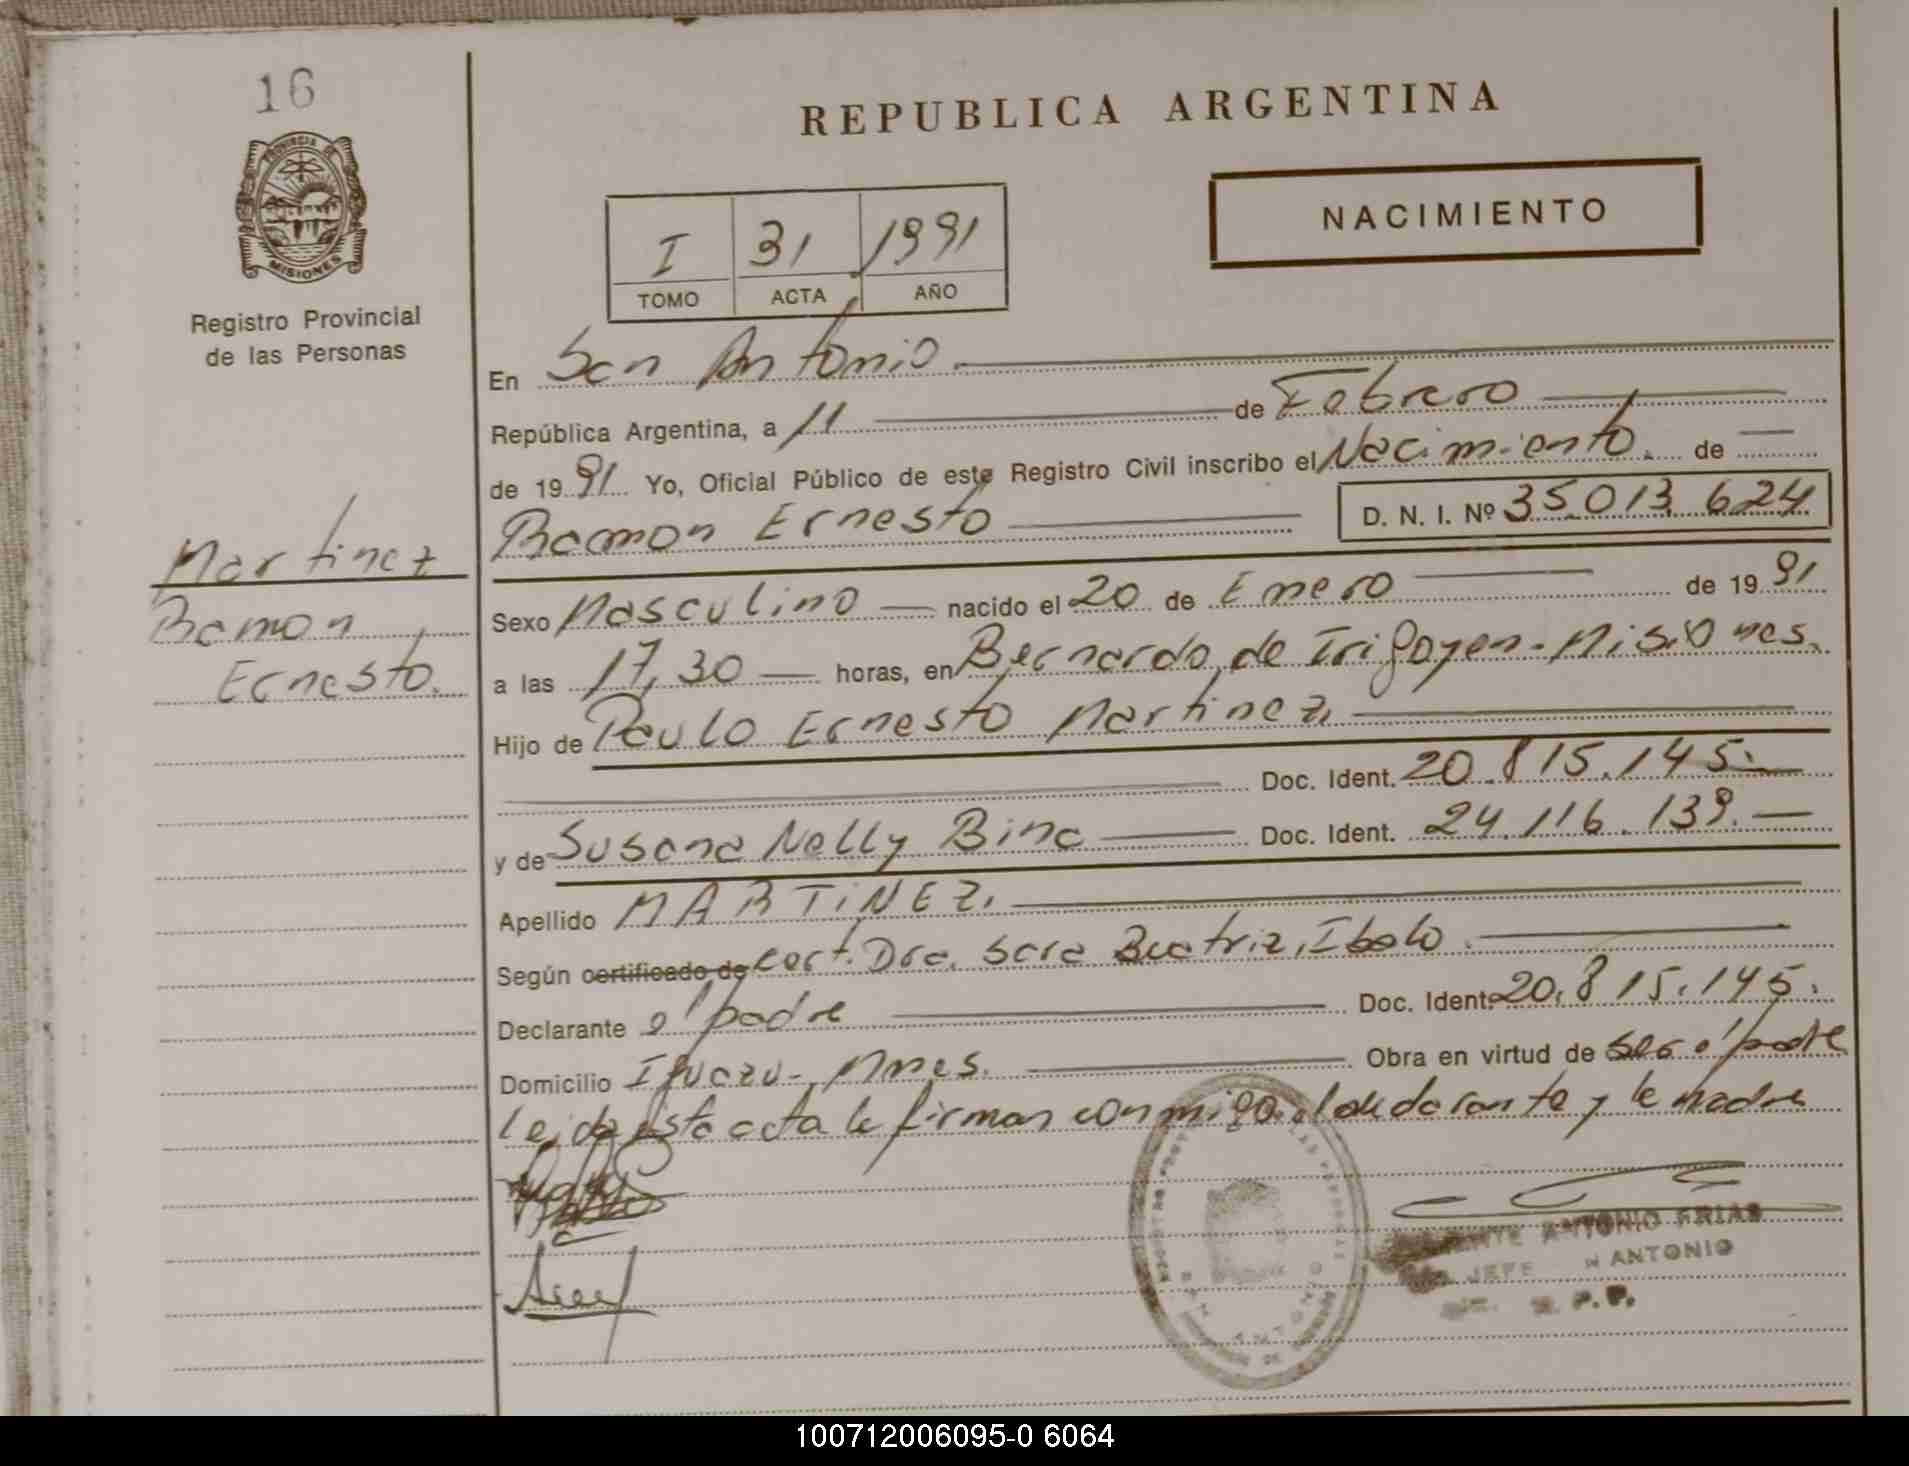 16
REPUBLICA ARGENTINA
PROVINCIA DE
MISIONES
Registro Provincial
de las Personas
NACIMIENTO
I 31 1991
TOMO ACTA AÑO
En San Antonio
República Argentina, a 11 de Febrero
de 1991 Yo, Oficial Público de este Registro Civil inscribo el Nacimiento. de
Ramon Ernesto D. N. I. Nº 35.013.624
Martinez
Ramon
Ernesto.
Sexo Masculino nacido el 20 de Enero de 1991
a las 17,30 horas, en Bernardo de Irigoyen - Misiones.
Hijo de Paulo Ernesto Martinez.
Doc. Ident. 20.815.145.
y de Susana Nelly Bina Doc. Ident. 24.116.139.
Apellido MARTiNEZ.
Según certificado de Cert. Dra. Sara Beatriz Ibalo.
Declarante el padre Doc. Ident. 20.815.145.
Domicilio Iguazu - Mnes. Obra en virtud de ser el padre
Leida esta acta la firman conmigo el declarante y la madre
ANTONIO FRIAS
JEFE N ANTONIO
R. P. P.
SAN ANTONIO
100712006095-0 6064